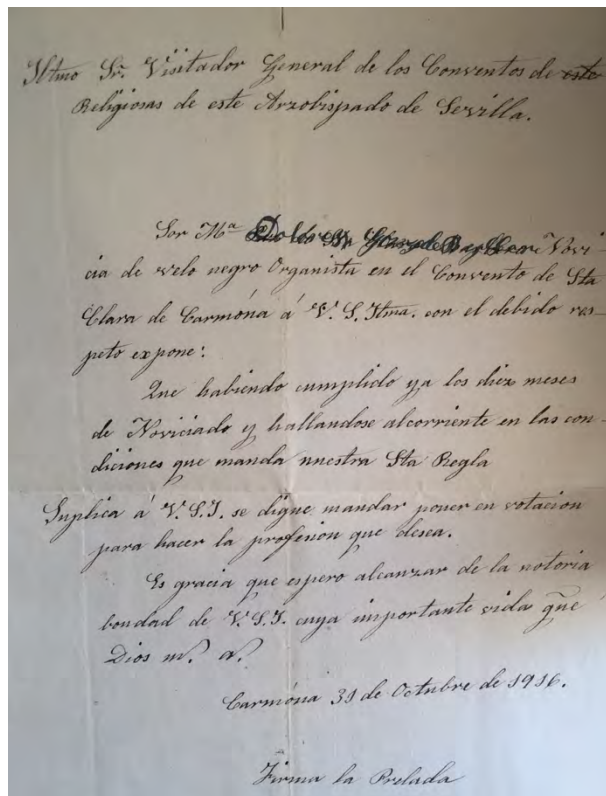 Iltmo Sr. Visitador General de los Conventos de este
Religiosas de este Arzobispado de Sevilla.
Sor Mª Dolores Novi-
cia de velo negro Organista en el Convento de Sta
Clara de Carmóna á V. S. Iltma. con el debido res-
peto expone:
Que habiendo cumplido ya los diez meses
de Noviciado y hallandose alcorriente en las con-
diciones que manda nuestra Sta Regla
Suplica á V. S. I. se digne mandar poner en votacion
para hacer la profesion que desea.
Es gracia que espero alcanzar de la notoria
bondad de V. S. I. cuya importante vida gue
Dios m. a.
Carmóna 31 de Octubre de 1916.
Firma la Prelada